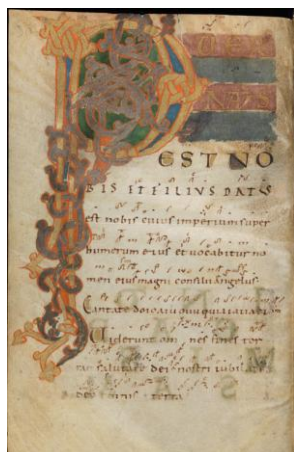 P UER
NATUS
EST NO
BIS ET FILIUS DATUS
est nobis cuius imperium super
humerum eius et vocabitur no
men eius magni consilii angelus
Cantate domino canticum
Viderunt omnes fines ter
salutare dei nostri iubilate
deo omnis terra